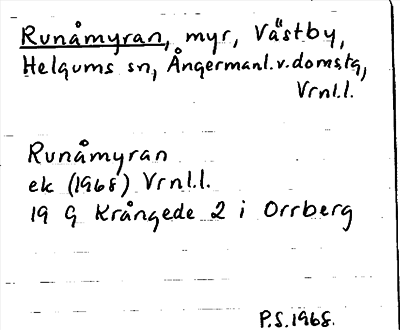 Runåmyran, myr, Västby,
Helgums sn, Ångermanl. v. domstg,
Vrnl.l.
Runåmyran
ek (1968) Vrnl.l.
19 G Krångede 2 i Orrberg
P.S. 1968.